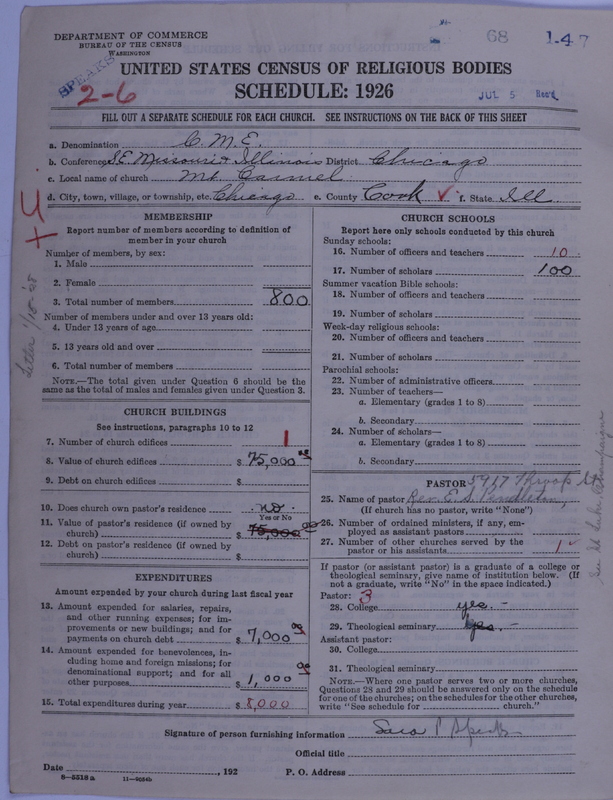 DEPARTMENT OF COMMERCE
BUREAU OF THE CENSUS
WASHINGTON
68 1-47
SPEAKS
2-6
JUL 5 Rec'd
UNITED STATES CENSUS OF RELIGIOUS BODIES
SCHEDULE: 1926
FILL OUT A SEPARATE SCHEDULE FOR EACH CHURCH. SEE INSTRUCTIONS ON THE BACK OF THIS SHEET
a. Denomination C.M.E.
b. Conference S.E. Missouri & Illinois District Chicago
c. Local name of church Mt Carmel
d. City, town, village, or township, etc. Chicago e. County Cook ✓ f. State Ill
Letter 1/18-'28
MEMBERSHIP
Report number of members according to definition of
member in your church
Number of members, by sex:
1. Male
2. Female
3. Total number of members 800
Number of members under and over 13 years old:
4. Under 13 years of age
5. 13 years old and over
6. Total number of members
NOTE.—The total given under Question 6 should be the
same as the total of males and females given under Question 3.
CHURCH BUILDINGS
See instructions, paragraphs 10 to 12
7. Number of church edifices 1
8. Value of church edifices $ 75,000 00
9. Debt on church edifices $
10. Does church own pastor's residence no
Yes or No
11. Value of pastor's residence (if owned by
church) $ 75,000 00
12. Debt on pastor's residence (if owned by
church) $
EXPENDITURES
Amount expended by your church during last fiscal year
13. Amount expended for salaries, repairs,
and other running expenses; for im-
provements or new buildings; and for
payments on church debt $ 7,000 00
14. Amount expended for benevolences, in-
cluding home and foreign missions; for
denominational support; and for all
other purposes $ 1,000 00
15. Total expenditures during year $ 8,000
CHURCH SCHOOLS
Report here only schools conducted by this church
Sunday schools:
16. Number of officers and teachers 10
17. Number of scholars 100
Summer vacation Bible schools:
18. Number of officers and teachers
19. Number of scholars
Week-day religious schools:
20. Number of officers and teachers
21. Number of scholars
Parochial schools:
22. Number of administrative officers
23. Number of teachers—
a. Elementary (grades 1 to 8)
b. Secondary
24. Number of scholars—
a. Elementary (grades 1 to 8)
b. Secondary
PASTOR 5917 Throop St
25. Name of pastor Rev. E.
(If church has no pastor, write "None")
26. Number of ordained ministers, if any, em-
ployed as assistant pastors
27. Number of other churches served by the
pastor or his assistants 1
If pastor (or assistant pastor) is a graduate of a college or
theological seminary, give name of institution below. (If
not a graduate, write "No" in the space indicated.)
Pastor: 3
28. College yes.
29. Theological seminary yes.
Assistant pastor:
30. College
31. Theological seminary
NOTE.—Where one pastor serves two or more churches,
Questions 28 and 29 should be answered only on the schedule
for one of the churches; on the schedules for the other churches,
write "See schedule for church."
Signature of person furnishing information Sara P Speaks
Official title
Date , 192 P. O. Address
8-5518a 11-9054b